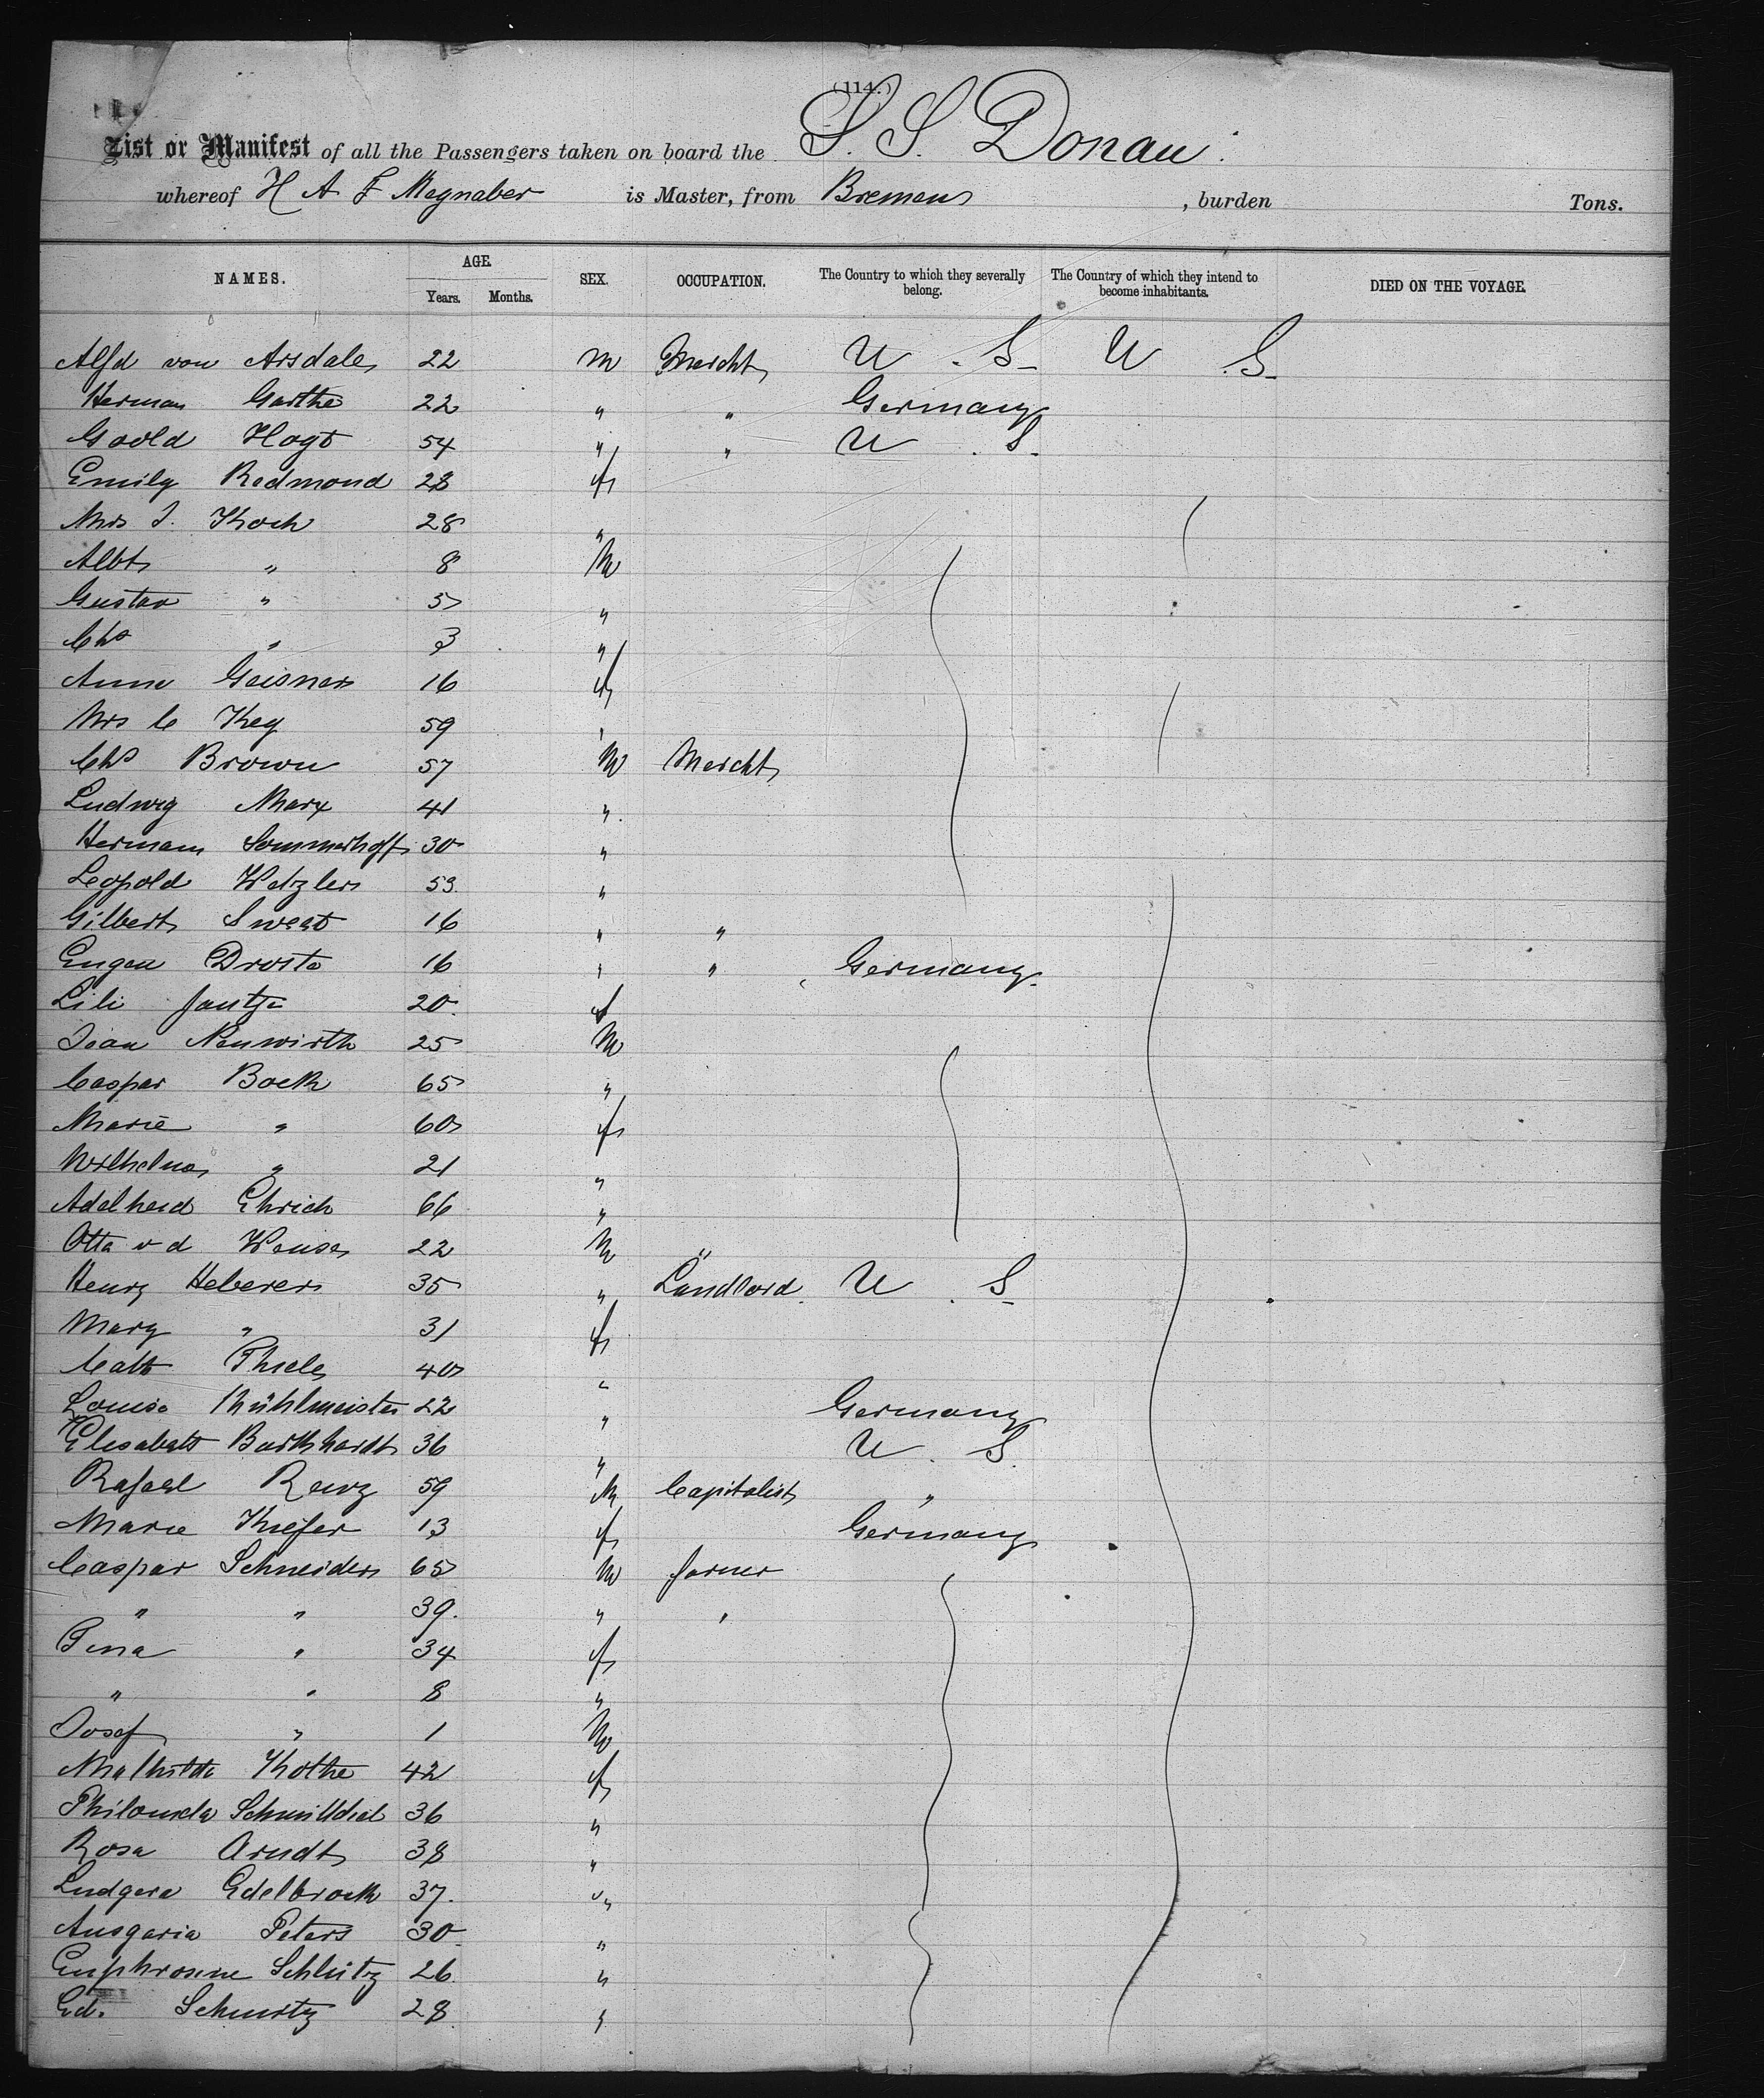 (114.)
List or Manifest of all the Passengers taken on board the S. S. Donau.
whereof H A F Meynaber is Master, from Bremen , burden Tons.
NAMES. AGE. SEX. OCCUPATION. The Country to which they severally belong. The Country of which they intend to become inhabitants. DIED ON THE VOYAGE.
Years. Months.
Alfd von Arsdale 22 m Mercht U. S. U. S.
Herman Garthe 22 " " Germany
Goold Hoyt 54 " " U. S.
Emily Redmond 28 f
Mrs J. Koch 28 "
Albt " 8 M
Gustav " 5 "
Chs " 3 "
Anna Geisner 16 f
Mrs C Key 59 "
Chs Brown 57 M Mercht
Ludwig Marx 41 "
Hermann Sommerhoff 30 "
Leopold Wetzler 53 "
Gilbert Sweat 16 " "
Eugen Droste 16 " " Germany
Lili 20 f
Jean Neuwirth 25 M
Caspar Bock 65 "
Marie " 60 f
Wilhelma " 21 "
Adelheid Ehrich 66 "
Otto v d Wense 22 M "
Henry Heberer 35 " Landlord U. S.
Mary " 31 f
Cath Thiele 40 "
Louise Kühlmeister 22 " Germany
Elisabeth Burkhardt 36 " U. S.
Rafael 59 M Capitalist "
Marie Kiefer 13 f Germany
Caspar Schneider 65 M farmer
" " 39. " "
Tina " 34 f
" " 8 "
Josef " 1 M
Mathilde Kothe 42 f
Philomela 36 "
Rosa Arndt 38 "
Ludgera Edelbrock 37. "
Ansgaria Peters 30 "
Euphrosine Schlütz 26 "
Ed. 28 "